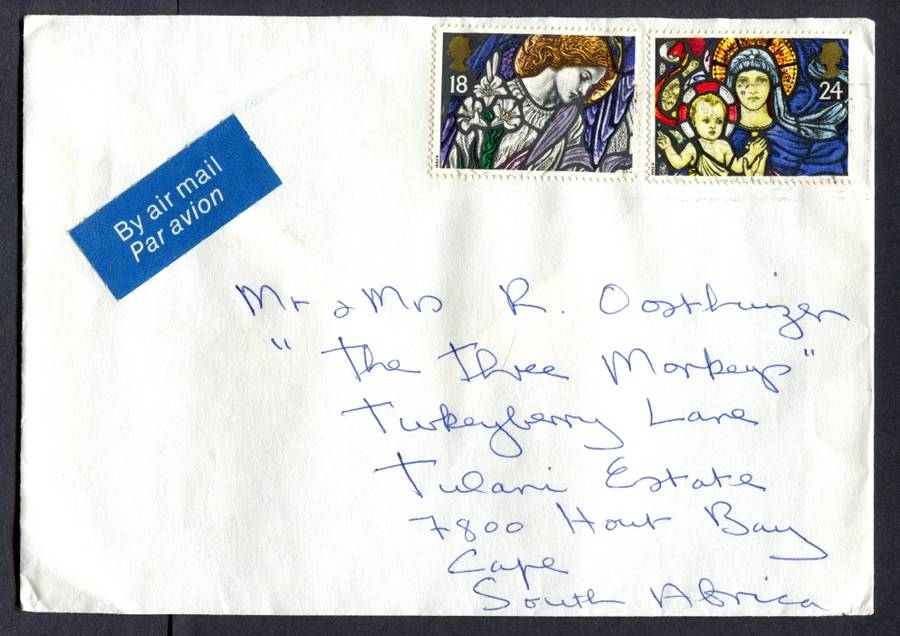 18
24
By air mail
Par avion
Mr & Mrs R. Oosthuizen
"The Three Monkeys"
Turkeyberry Lane
Tulani Estate
7800 Hout Bay
Cape
South Africa